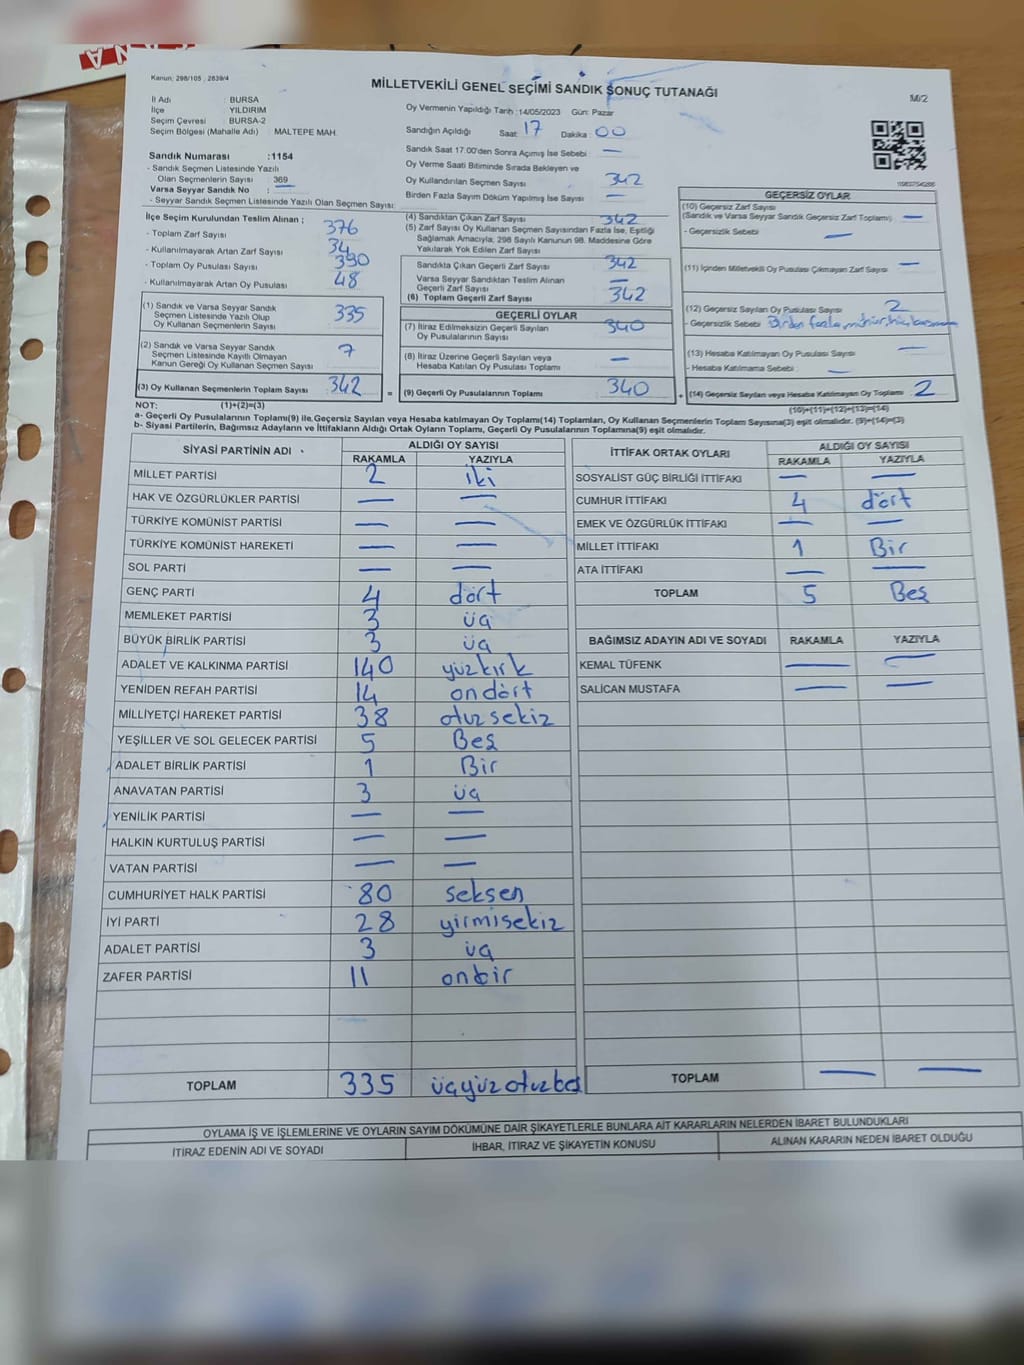 Kanun: 298/105 , 2839/4
MİLLETVEKİLİ GENEL SEÇİMİ SANDIK SONUÇ TUTANAĞI
M/2
İl Adı : BURSA
İlçe : YILDIRIM
Seçim Çevresi : BURSA-2
Seçim Bölgesi (Mahalle Adı) : MALTEPE MAH.
Sandık Numarası :1154
- Sandık Seçmen Listesinde Yazılı
Olan Seçmenlerin Sayısı : 369
Varsa Seyyar Sandık No :
- Seyyar Sandık Seçmen Listesinde Yazılı Olan Seçmen Sayısı:
Oy Vermenin Yapıldığı Tarih :14/05/2023 Gün: Pazar
Sandığın Açıldığı Saat: 17 Dakika : 00
Sandık Saat 17:00'den Sonra Açımış İse Sebebi : —
Oy Verme Saati Bitiminde Sırada Bekleyen ve
Oy Kullandırılan Seçmen Sayısı : 342
Birden Fazla Sayım Döküm Yapılmış İse Sayısı : —
İlçe Seçim Kurulundan Teslim Alınan ;
- Toplam Zarf Sayısı : 376
- Kullanılmayarak Artan Zarf Sayısı : 34
- Toplam Oy Pusulası Sayısı : 390
- Kullanılmayarak Artan Oy Pusulası : 48
(1) Sandık ve Varsa Seyyar Sandık
Seçmen Listesinde Yazılı Olup
Oy Kullanan Seçmenlerin Sayısı : 335
(2) Sandık ve Varsa Seyyar Sandık
Seçmen Listesinde Kayıtlı Olmayan
Kanun Gereği Oy Kullanan Seçmen Sayısı : 7
(3) Oy Kullanan Seçmenlerin Toplam Sayısı : 342
(1)+(2)=(3)
(4) Sandıktan Çıkan Zarf Sayısı : 342
(5) Zarf Sayısı Oy Kullanan Seçmen Sayısından Fazla İse, Eşitliği
Sağlamak Amacıyla; 298 Sayılı Kanunun 98. Maddesine Göre
Yakılarak Yok Edilen Zarf Sayısı :
Sandıkta Çıkan Geçerli Zarf Sayısı : 342
Varsa Seyyar Sandıktan Teslim Alınan
Geçerli Zarf Sayısı : —
(6) Toplam Geçerli Zarf Sayısı : 342
GEÇERLİ OYLAR
(7) İtiraz Edilmeksizin Geçerli Sayılan
Oy Pusulalarının Sayısı : 340
(8) İtiraz Üzerine Geçerli Sayılan veya
Hesaba Katılan Oy Pusulası Toplamı : —
= (9) Geçerli Oy Pusulalarının Toplamı : 340
GEÇERSİZ OYLAR
(10) Geçersiz Zarf Sayısı
(Sandık ve Varsa Seyyar Sandık Geçersiz Zarf Toplamı) : —
- Geçersizlik Sebebi : —
(11) İçinden Milletvekili Oy Pusulası Çıkmayan Zarf Sayısı : —
(12) Geçersiz Sayılan Oy Pusulası Sayısı : 2
- Geçersizlik Sebebi : Birden fazla mühür
(13) Hesaba Katılmayan Oy Pusulası Sayısı : —
- Hesaba Katılmama Sebebi : —
+ (14) Geçersiz Sayılan veya Hesaba Katılmayan Oy Toplamı : 2
(10)+(11)+(12)+(13)=(14)
NOT:
a- Geçerli Oy Pusulalarının Toplamı(9) ile Geçersiz Sayılan veya Hesaba katılmayan Oy Toplamı(14) Toplamları, Oy Kullanan Seçmenlerin Toplam Sayısına(3) eşit olmalıdır. (9)+(14)=(3)
b- Siyasi Partilerin, Bağımsız Adayların ve İttifakların Aldığı Ortak Oyların Toplamı, Geçerli Oy Pusulalarının Toplamına(9) eşit olmalıdır.
SİYASİ PARTİNİN ADI ALDIĞI OY SAYISI
RAKAMLA YAZIYLA
MİLLET PARTİSİ 2 iki
HAK VE ÖZGÜRLÜKLER PARTİSİ — —
TÜRKİYE KOMÜNİST PARTİSİ — —
TÜRKİYE KOMÜNİST HAREKETİ — —
SOL PARTİ — —
GENÇ PARTİ 4 dört
MEMLEKET PARTİSİ 3 üç
BÜYÜK BİRLİK PARTİSİ 3 üç
ADALET VE KALKINMA PARTİSİ 140 yüzkırk
YENİDEN REFAH PARTİSİ 14 ondört
MİLLİYETÇİ HAREKET PARTİSİ 38 otuzsekiz
YEŞİLLER VE SOL GELECEK PARTİSİ 5 Beş
ADALET BİRLİK PARTİSİ 1 Bir
ANAVATAN PARTİSİ 3 üç
YENİLİK PARTİSİ — —
HALKIN KURTULUŞ PARTİSİ — —
VATAN PARTİSİ — —
CUMHURİYET HALK PARTİSİ 80 seksen
İYİ PARTİ 28 yirmisekiz
ADALET PARTİSİ 3 üç
ZAFER PARTİSİ 11 onbir
TOPLAM 335 üçyüzotuzbeş
İTTİFAK ORTAK OYLARI ALDIĞI OY SAYISI
RAKAMLA YAZIYLA
SOSYALİST GÜÇ BİRLİĞİ İTTİFAKI — —
CUMHUR İTTİFAKI 4 dört
EMEK VE ÖZGÜRLÜK İTTİFAKI — —
MİLLET İTTİFAKI 1 Bir
ATA İTTİFAKI — —
TOPLAM 5 Beş
BAĞIMSIZ ADAYIN ADI VE SOYADI RAKAMLA YAZIYLA
KEMAL TÜFENK — —
SALİCAN MUSTAFA — —
TOPLAM — —
OYLAMA İŞ VE İŞLEMLERİNE VE OYLARIN SAYIM DÖKÜMÜNE DAİR ŞİKAYETLERLE BUNLARA AİT KARARLARIN NELERDEN İBARET BULUNDUKLARI
İTİRAZ EDENİN ADI VE SOYADI İHBAR, İTİRAZ VE ŞİKAYETİN KONUSU ALINAN KARARIN NEDEN İBARET OLDUĞU